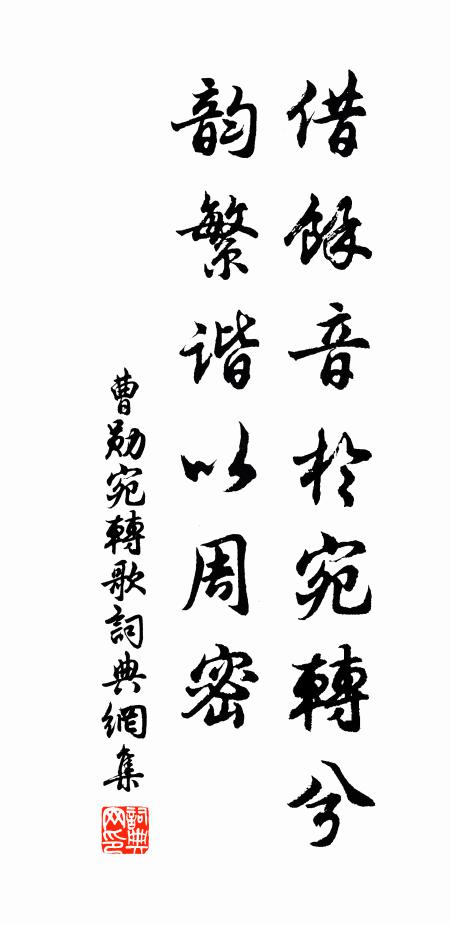 借餘音於宛轉兮
韵繁谐以周密
曹勋宛轉歌詞典網集
詞典网印